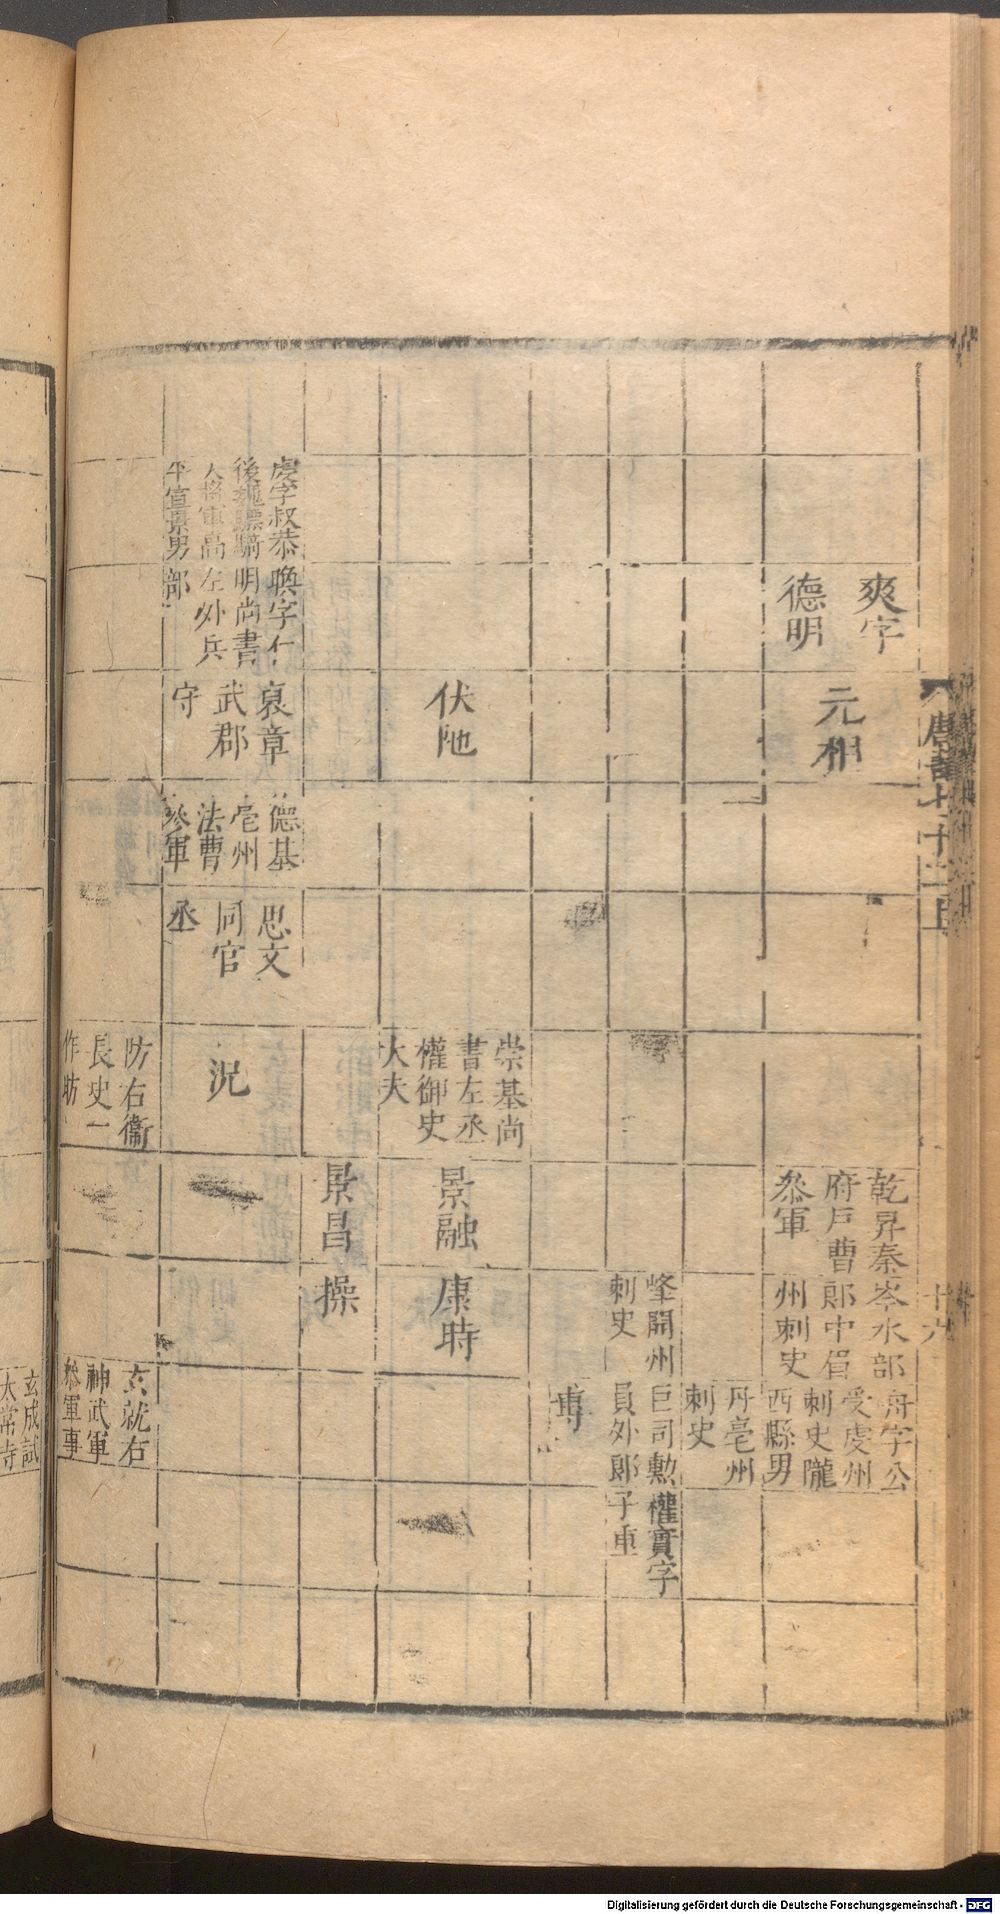 唐書七十二上
十六
爽字
德明
元相
乾昇秦
府戶曹
叅軍
岑水部
郎中眉
州刺史
舟字公
受虔州
刺史隴
西縣男
丹亳州
刺史
峰開州
刺史
巨司勲
員外郎
權實字
子重
專
崇基尚
書左丞
權御史
大夫
伏陁
景融
康時
景昌
操
虔字叔恭
後魏驃騎
大將軍高
平宣景男
喚字仁
明尚書
左外兵
部
裒章
武郡
守
德基
亳州
法曹
叅軍
思文
同官
丞
況
防右衞
長史一
作昉
玄就右
神武軍
叅軍事
玄成試
太常寺
Digitalisierung gefördert durch die Deutsche Forschungsgemeinschaft - DFG